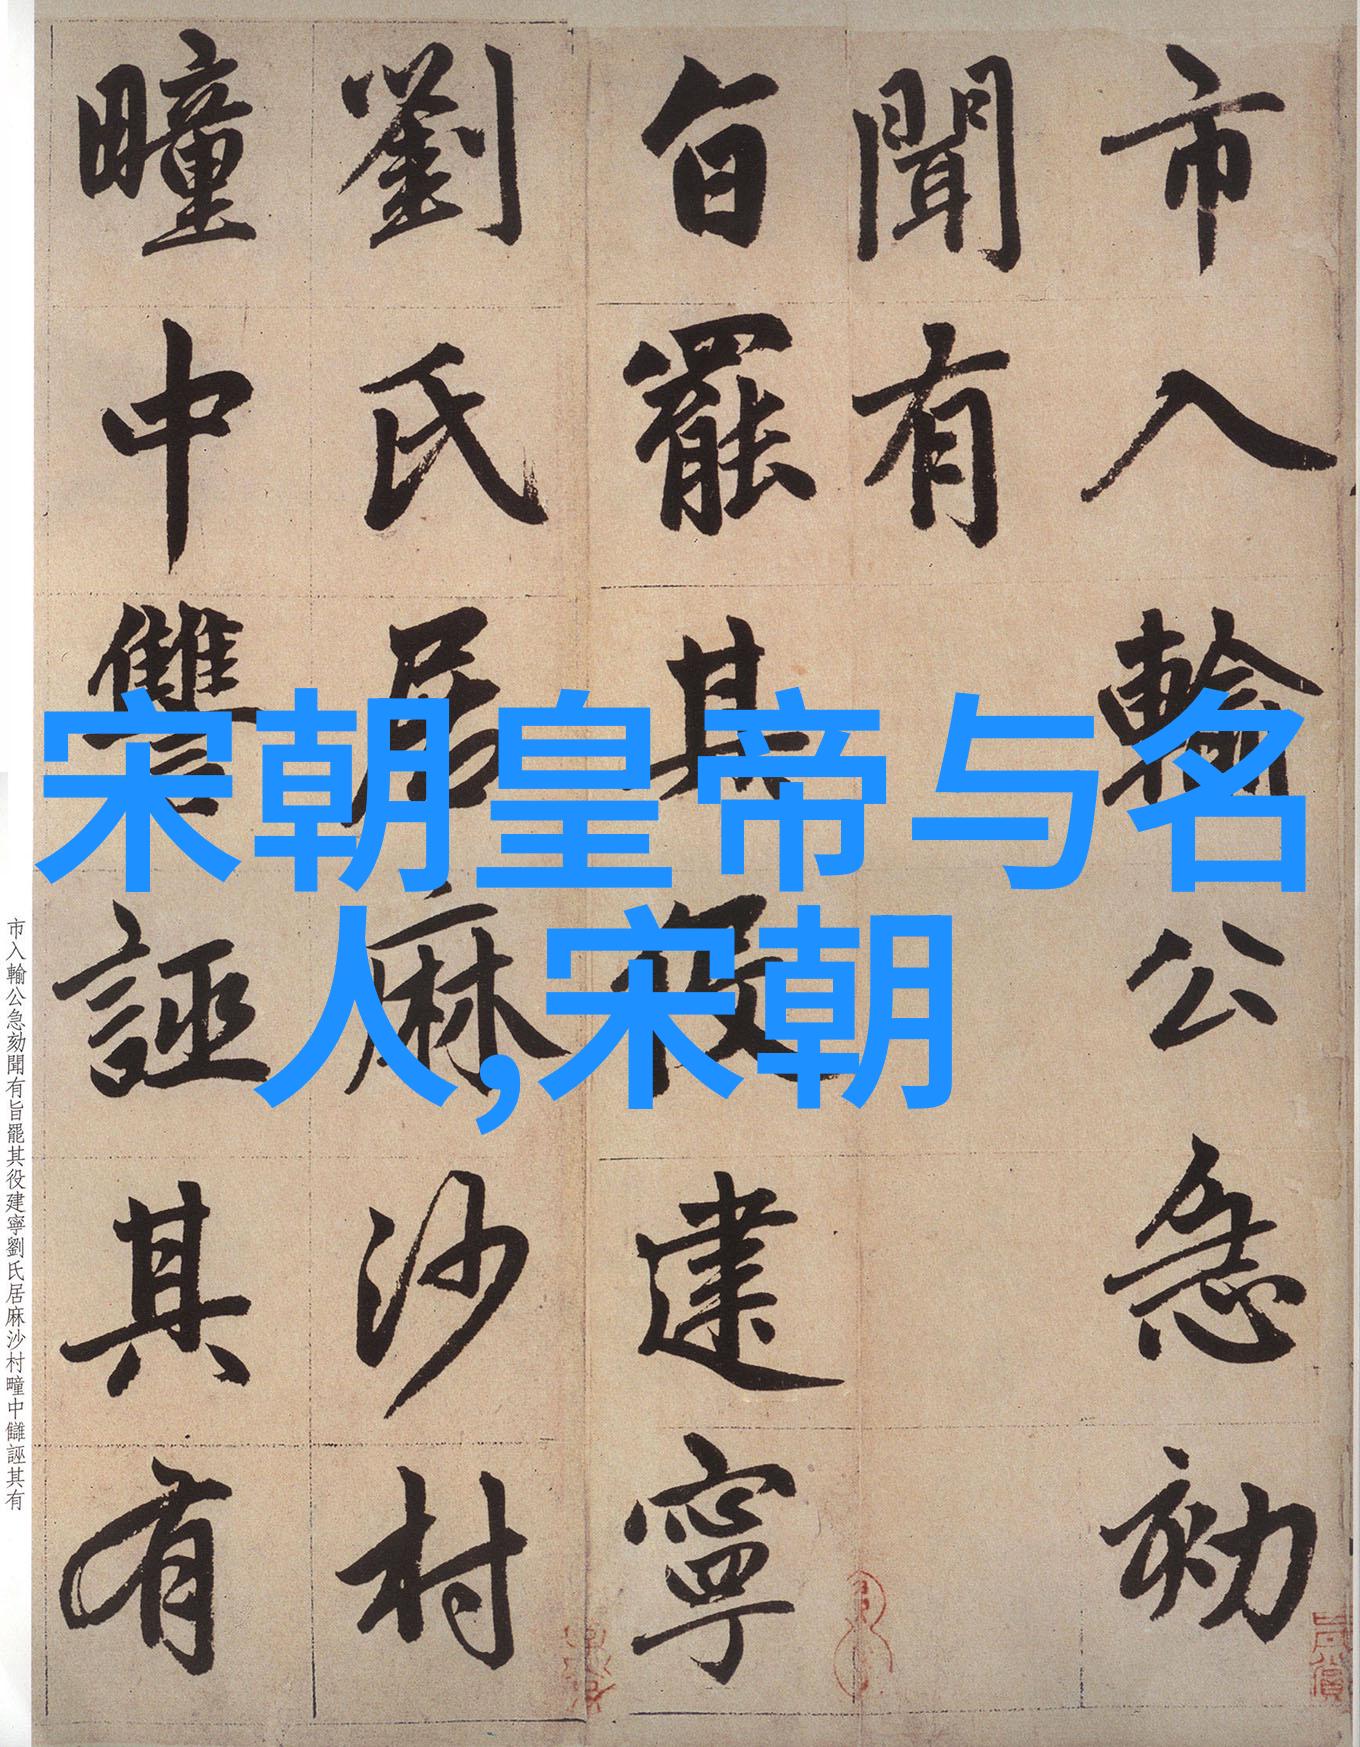 市入輸公急劾
聞有
旨罷其役建寧
劉氏居麻沙村
疃中讐誣其有
宋朝皇帝与名
人,宋朝
市入輸公急劾聞有旨罷其役建寧劉氏居麻沙村疃中讎誣其有